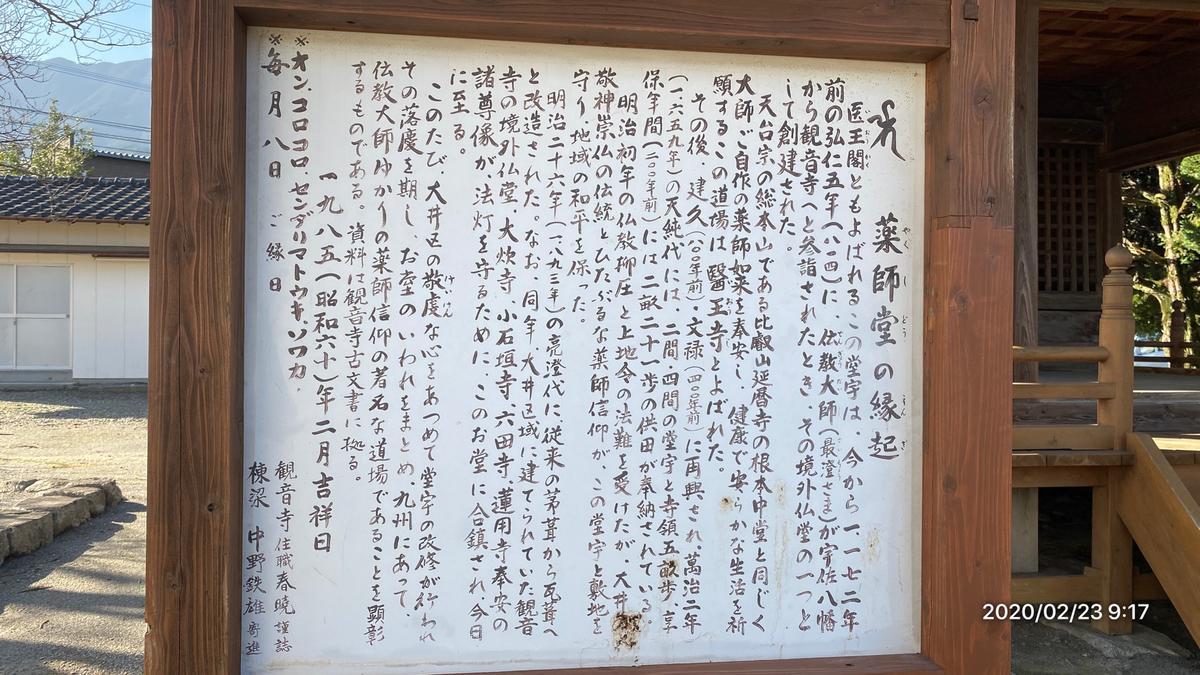 薬師堂の縁起
やく し どう えん ぎ
医王閣ともよばれるこの堂宇は、今から一一七二年
前の弘仁五年(八一四)に、伝教大師(最澄さま)が宇佐八幡
から観音寺へと参詣されたとき、その境外仏堂の一つと
して創建された。
天台宗の総本山である比叡山延暦寺の根本中堂と同じく
大師ご自作の薬師如来を奉安し、健康で安らかな生活を祈
願するこの道場は、醫王寺とよばれた。
その後、建久(八〇〇年前)、文禄(四〇〇年前)に再興され、萬治二年
(一六五九年)の天純代には、二間、四間の堂宇と寺領五畝歩、享
保年間(二八〇年前)には二畝二十一歩の供田が奉納されている。
明治初年の仏教抑圧と上地令の法難を受けたが、大井
敬神崇仏の伝統とひたぶるな薬師信仰が、この堂宇と敷地を
守り地域の和平を保った。
明治二十六年(一八九三年)の亮澄代に、従来の茅葺から瓦葺へ
と改造された。なお、同年大井区域に建てられていた観音
寺の境外仏堂、大炊寺、小石垣寺、六田寺、蓮用寺奉安の
諸尊像が、法灯を守るために、このお堂に合鎮され、今日
に至る。
このたび、大井区の敬虔な心をあつめて堂宇の改修が行われ
けいけん
その落慶を期し、お堂のいわれをまとめ、九州にあって、
伝教大師ゆかりの薬師信仰の著名な道場であることを顕彰
するものである。資料は観音寺古文書に拠る。
一九八五(昭和六十)年二月吉祥日
※オン、コロコロ、センダリマトウキ、ソワカ.
※毎月八日 ご縁日
観音寺住職春暁謹誌
棟梁 中野鉄雄寄進
2020/02/23 9:17